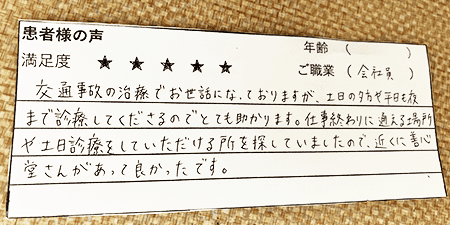 患者様の声
年齢 ( )
満足度 ★ ★ ★ ★ ★
ご職業 (会社員)
交通事故の治療でお世話になっておりますが、土日の夕方や平日も夜
まで診療してくださるのでとても助かります。仕事終わりに通える場所
や土日診療をしていただける所を探していましたので、近くに善心
堂さんがあって良かったです。